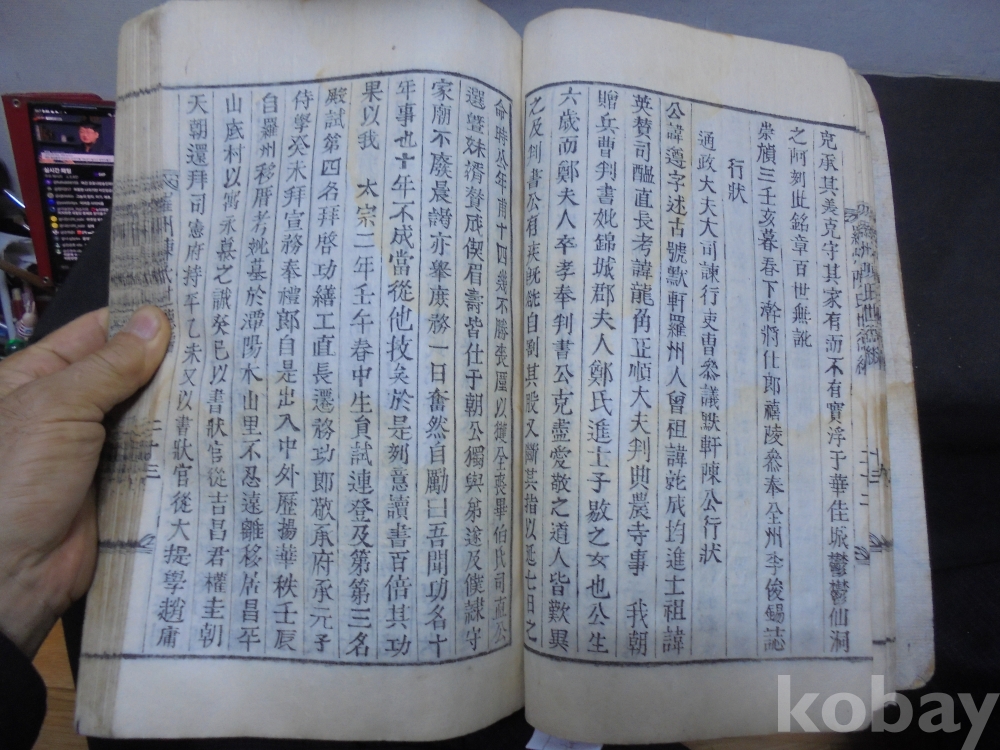 克承其美克守其家有洏不有實浮于華佳城鬱鬱仙洞
之阿刻此銘章百世無訛
崇禎三壬亥暮春下澣將仕郎禧陵叅奉全州李俊錫誌
行狀
通政大夫大司諫行吏曹叅議默軒陳公行狀
公諱遵字述古號默軒羅州人曾祖諱乾成均進士祖諱
英贊司醞直長考諱龍角正順大夫判典農寺事 我朝
贈兵曹判書妣錦城郡夫人鄭氏進士子敭之女也公生
六歲而鄭夫人卒孝奉判書公克盡愛敬之道人皆歎異
之及判書公有疾旣能自割其股又斷其指以延七日之
命時公年甫十四幾不勝喪厪以御全喪畢伯氏司直公
選曁妹濟贊成偰眉壽皆仕于朝公獨與弟遂及僕隷守
家廟不廢晨謁亦擧庶務一日奮然自勵曰吾聞功名十
年事也十年不成當從他技矣於是刻意讀書百倍其功
果以我 太宗二年壬午春中生員試連登及第第三名
殿試第四名拜啓功繕工直長遷務功郎敬承府承元子
侍學癸未拜宣務奉禮郎自是出入中外歷揚華秩壬辰
自羅州移厝考妣墓於潭陽水山里不忍遠離移居昌平
山底村以寓永慕之誠癸巳以書狀官從吉昌君權圭朝
天朝還拜司憲府持平乙未又以書狀官從大提學趙庸
二十三
kobay